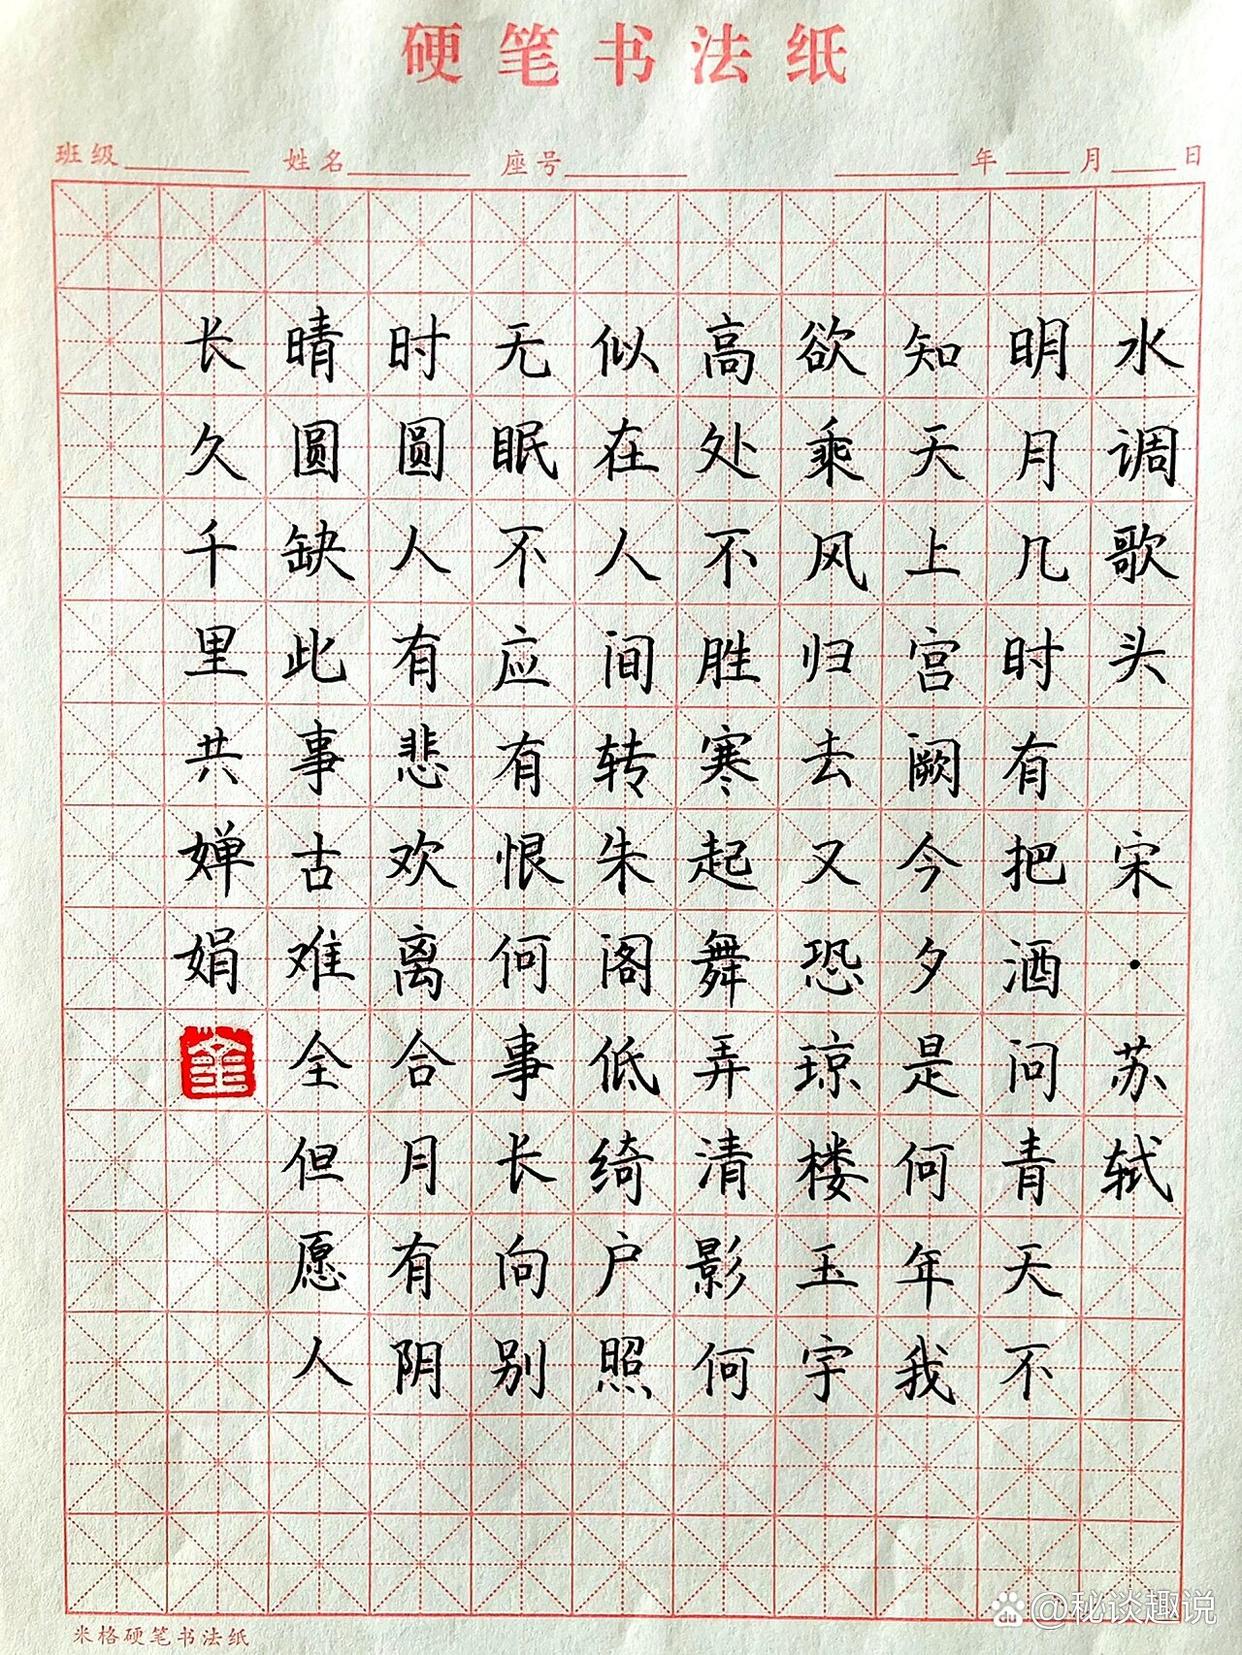 硬笔书法纸
班级 姓名 座号 年 月 日
水调歌头 宋·苏轼
明月几时有把酒问青天不
知天上宫阙今夕是何年我
欲乘风归去又恐琼楼玉宇
高处不胜寒起舞弄清影何
似在人间转朱阁低绮户照
无眠不应有恨何事长向别
时圆人有悲欢离合月有阴
晴圆缺此事古难全但愿人
长久千里共婵娟
米格硬笔书法纸
@秘谈趣说